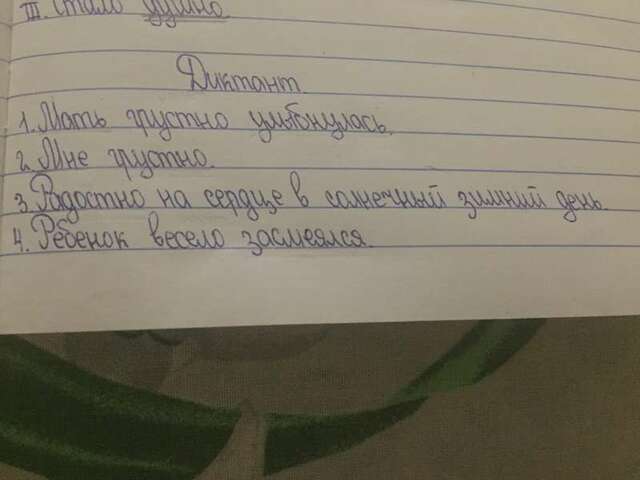 III. Стало душно
Диктант.
1. Мать грустно улыбнулась.
2. Мне грустно.
3. Радостно на сердце в солнечный зимний день.
4. Ребёнок весело засмеялся.